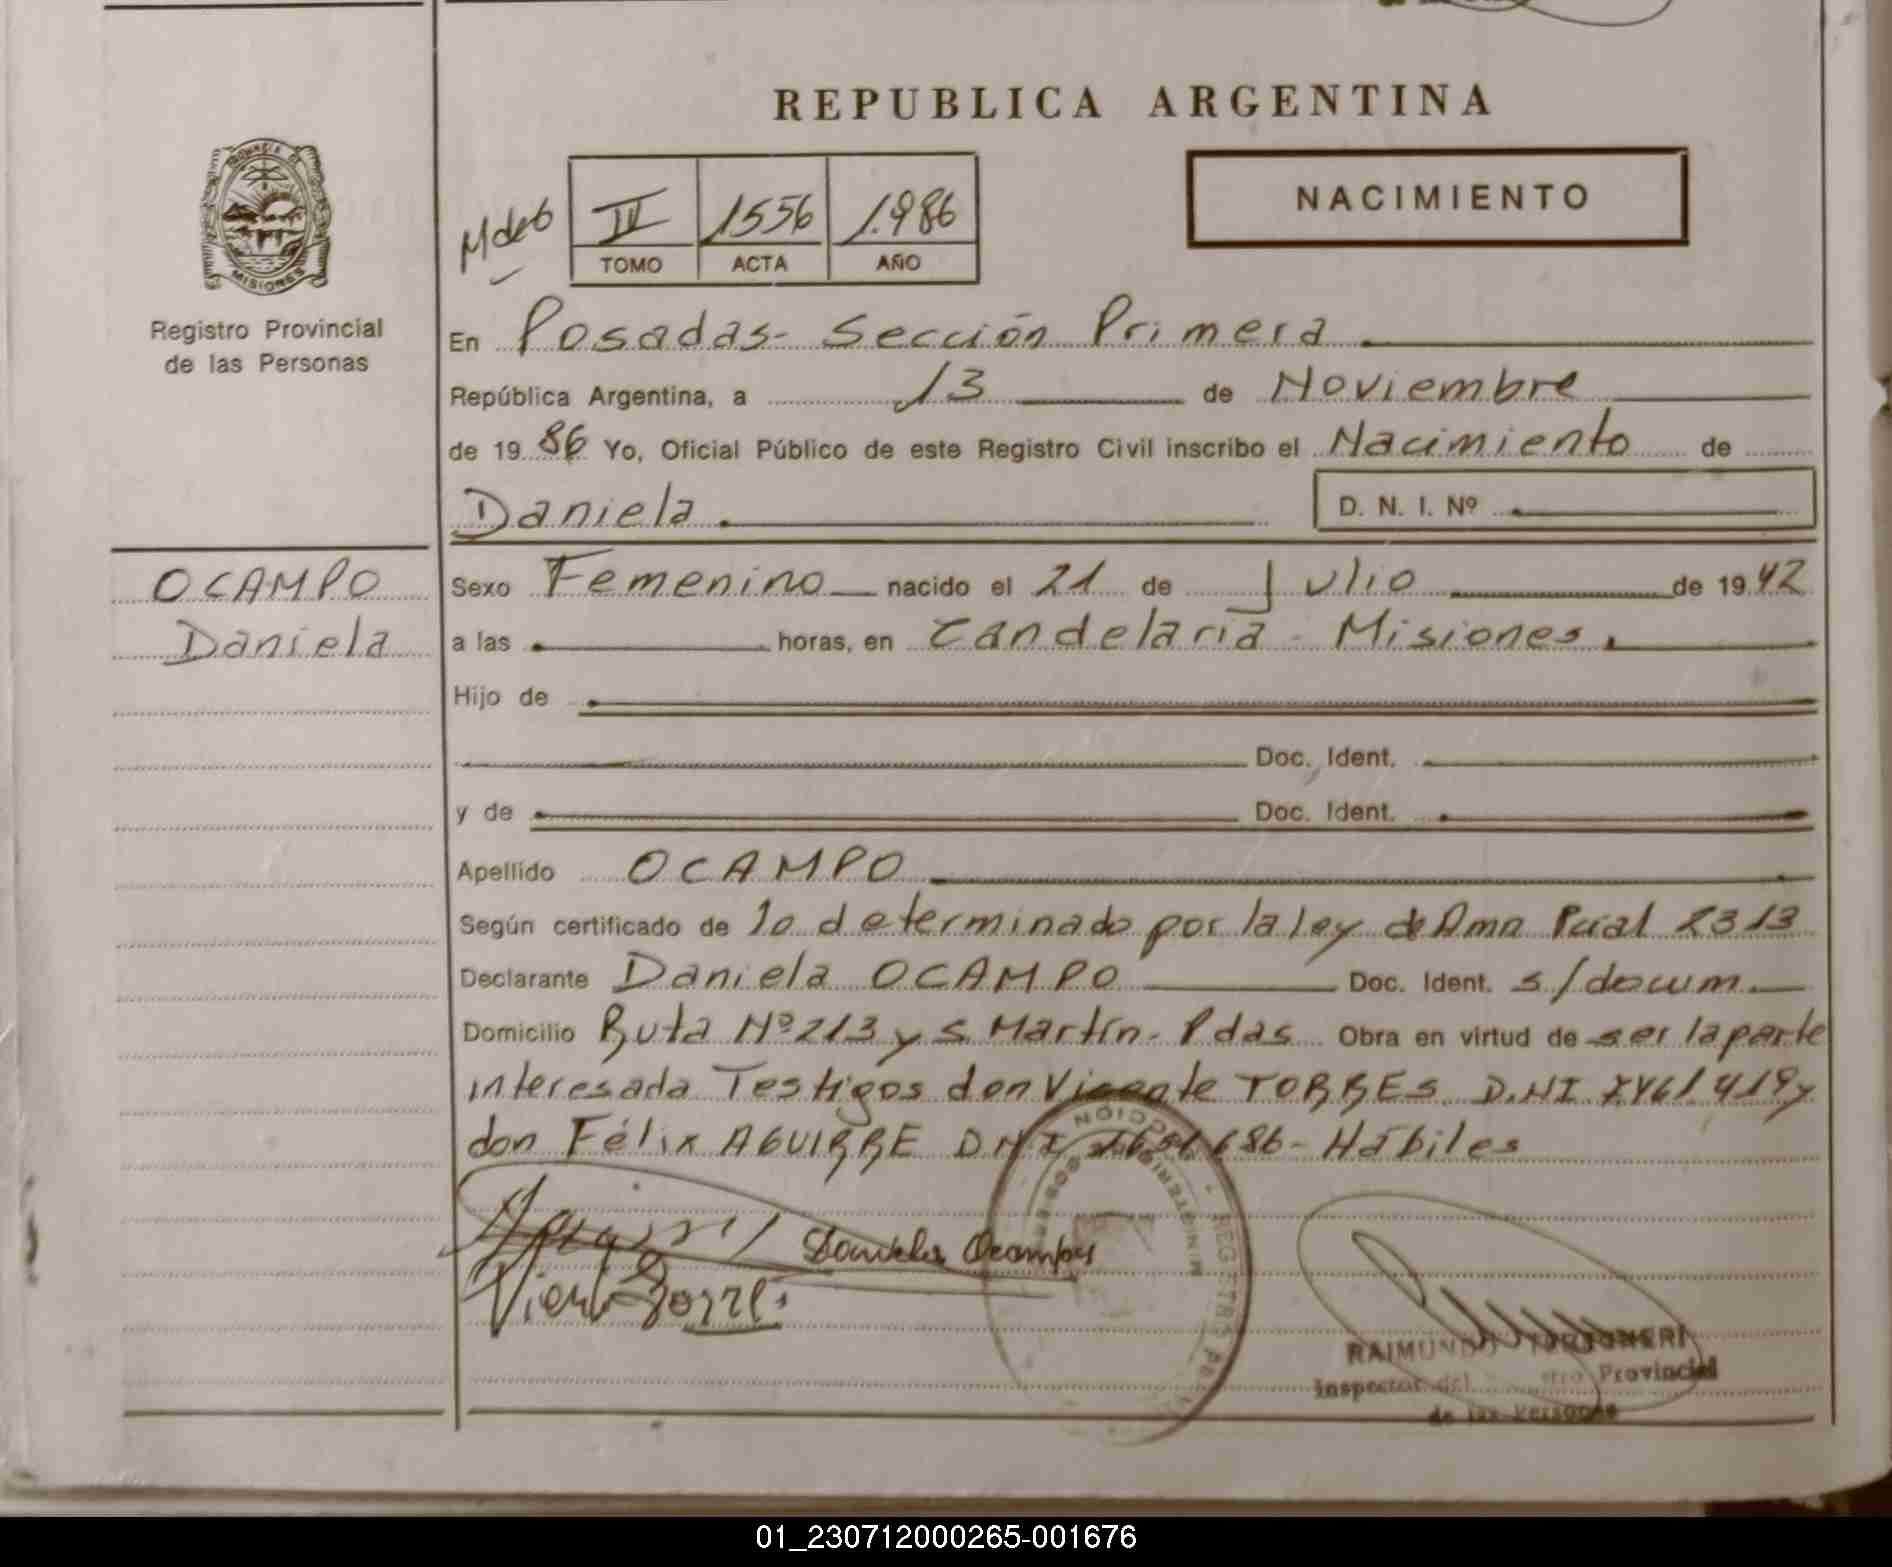 REPUBLICA ARGENTINA
PROVINCIA DE
MISIONES
Registro Provincial
de las Personas
NACIMIENTO
1556 1.986
TOMO ACTA AÑO
En Posadas- Sección Primera
República Argentina, a 13 de Noviembre
de 19 86 Yo, Oficial Público de este Registro Civil inscribo el Nacimiento de
Daniela
D. N. I. Nº
OCAMPO
Daniela
Sexo Femenino nacido el 21 de Julio de 19 42
a las horas, en Candelaria - Misiones.
Hijo de
Doc. Ident.
y de Doc. Ident.
Apellido OCAMPO
Según certificado de lo determinado por la ley de 2313
Declarante Daniela OCAMPO Doc. Ident. s/docum.
Domicilio Ruta Nº 213 y S. Martín - Pdas Obra en virtud de ser la parte
interesada Testigos don Vicente TORRES D.NI y
don Félix AGUIRRE D.N.I 686 - Hábiles
Daniela Ocampo
RAIMUNDO
Inspector del Provincial
de las Personas
01_230712000265-001676